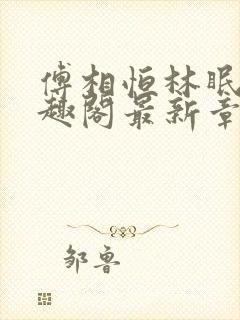 傅相恒林眠
趣阁最新章
邹鲁